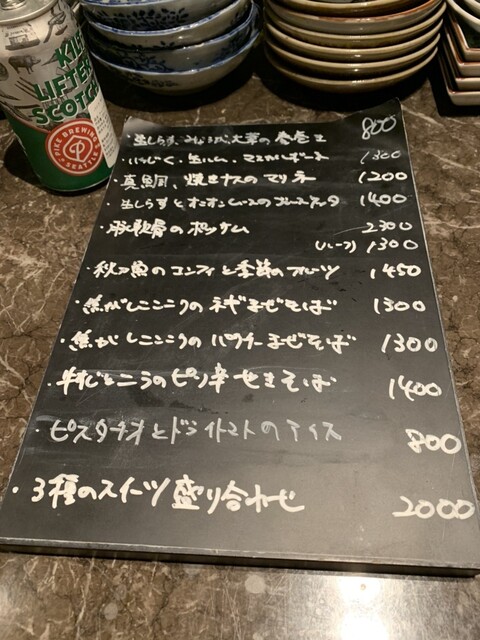 KILT
LIFTER
SCOTCH
PIKE BREWING
SEATTLE
・生しらす、みょうが、大葉の春巻き 800
・いちじく、生ハム、マスカルポーネ 1300
・真鯛、焼きナスのマリネ 1200
・生しらすとオニオンの 1400
・豚軟骨のポッサム 2300
(ハーフ) 1300
・秋刀魚のコンフィと季節のフルーツ 1450
・焦がしニンニクのネギまぜそば 1300
・焦がしニンニクのパクチーまぜそば 1300
・牛すじとニラのピリ辛まぜそば 1400
・ピスタチオとドライトマトのアイス 800
・3種のスイーツ盛り合わせ 2000